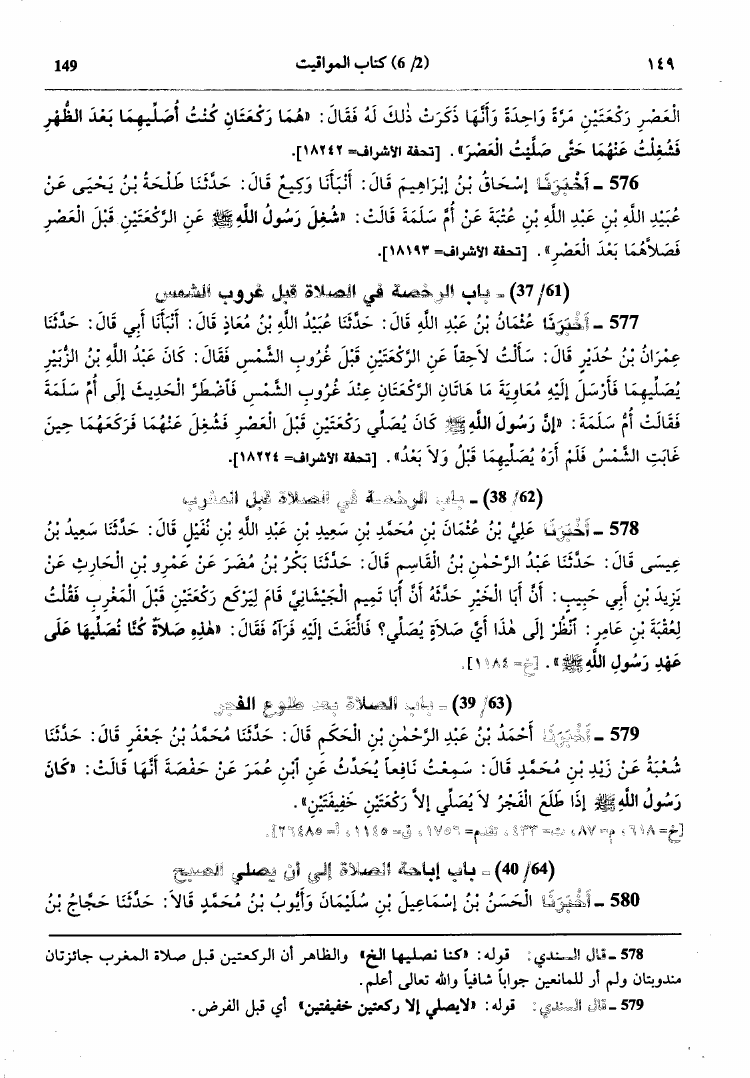 ١٤٩ (2/ 6) كتاب المواقيت 149
الْعَصْرِ رَكْعَتَيْنِ مَرَّةً وَاحِدَةً وَأَنَّهَا ذَكَرَتْ ذٰلِكَ لَهُ فَقَالَ: «هُمَا رَكْعَتَانِ كُنْتُ أُصَلِّيهِمَا بَعْدَ الظُّهْرِ
فَشُغِلْتُ عَنْهُمَا حَتَّى صَلَّيْتُ الْعَصْرَ». [تحفة الأشراف= ١٨٢٤٢].
576 ـ أَخْبَرَنَا إِسْحَاقُ بْنُ إِبْرَاهِيمَ قَالَ: أَنْبَأَنَا وَكِيعٌ قَالَ: حَدَّثَنَا طَلْحَةُ بْنُ يَحْيَى عَنْ
عُبَيْدِ اللَّهِ بْنِ عَبْدِ اللَّهِ بْنِ عُتْبَةَ عَنْ أُمِّ سَلَمَةَ قَالَتْ: «شُغِلَ رَسُولُ اللَّهِ ﷺ عَنِ الرَّكْعَتَيْنِ قَبْلَ الْعَصْرِ
فَصَلاَّهُمَا بَعْدَ الْعَصْرِ». [تحفة الأشراف= ١٨١٩٣].
(37/61) ـ باب الرخصة في الصلاة قبل غروب الشمس
577 ـ أَخْبَرَنَا عُثْمَانُ بْنُ عَبْدِ اللَّهِ قَالَ: حَدَّثَنَا عُبَيْدُ اللَّهِ بْنُ مُعَاذٍ قَالَ: أَنْبَأَنَا أَبِي قَالَ: حَدَّثَنَا
عِمْرَانُ بْنُ حُدَيْرٍ قَالَ: سَأَلْتُ لاَحِقاً عَنِ الرَّكْعَتَيْنِ قَبْلَ غُرُوبِ الشَّمْسِ فَقَالَ: كَانَ عَبْدُ اللَّهِ بْنُ الزُّبَيْرِ
يُصَلِّيهِمَا فَأَرْسَلَ إِلَيْهِ مُعَاوِيَةُ مَا هَاتَانِ الرَّكْعَتَانِ عِنْدَ غُرُوبِ الشَّمْسِ فَاضْطَرَّ الْحَدِيثَ إِلَى أُمِّ سَلَمَةَ
فَقَالَتْ أُمُّ سَلَمَةَ: «إِنَّ رَسُولَ اللَّهِ ﷺ كَانَ يُصَلِّي رَكْعَتَيْنِ قَبْلَ الْعَصْرِ فَشُغِلَ عَنْهُمَا فَرَكَعَهُمَا حِينَ
غَابَتِ الشَّمْسُ فَلَمْ أَرَهُ يُصَلِّيهِمَا قَبْلُ وَلاَ بَعْدُ». [تحفة الأشراف= ١٨٢٢٤].
(38/62) ـ باب الرخصة في الصلاة قبل المغرب
578 ـ أَخْبَرَنَا عَلِيُّ بْنُ عُثْمَانَ بْنِ مُحَمَّدِ بْنِ سَعِيدِ بْنِ عَبْدِ اللَّهِ بْنِ نُفَيْلٍ قَالَ: حَدَّثَنَا سَعِيدُ بْنُ
عِيسَى قَالَ: حَدَّثَنَا عَبْدُ الرَّحْمٰنِ بْنُ الْقَاسِمِ قَالَ: حَدَّثَنَا بَكْرُ بْنُ مُضَرَ عَنْ عَمْرِو بْنِ الْحَارِثِ عَنْ
يَزِيدَ بْنِ أَبِي حَبِيبٍ: أَنَّ أَبَا الْخَيْرِ حَدَّثَهُ أَنَّ أَبَا تَمِيمٍ الْجَيْشَانِيَّ قَامَ لِيَرْكَعَ رَكْعَتَيْنِ قَبْلَ الْمَغْرِبِ فَقُلْتُ
لِعُقْبَةَ بْنِ عَامِرٍ: ٱنْظُرْ إِلَى هٰذَا أَيَّ صَلاَةٍ يُصَلِّي؟ فَالْتَفَتَ إِلَيْهِ فَرَآهُ فَقَالَ: «هٰذِهِ صَلاَةٌ كُنَّا نُصَلِّيهَا عَلَى
عَهْدِ رَسُولِ اللَّهِ ﷺ». [خ= ١١٨٤].
(39/63) ـ باب الصلاة بعد طلوع الفجر
579 ـ أَخْبَرَنَا أَحْمَدُ بْنُ عَبْدِ الرَّحْمٰنِ بْنِ الْحَكَمِ قَالَ: حَدَّثَنَا مُحَمَّدُ بْنُ جَعْفَرٍ قَالَ: حَدَّثَنَا
شُعْبَةُ عَنْ زَيْدِ بْنِ مُحَمَّدٍ قَالَ: سَمِعْتُ نَافِعاً يُحَدِّثُ عَنِ ٱبْنِ عُمَرَ عَنْ حَفْصَةَ أَنَّهَا قَالَتْ: «كَانَ
رَسُولُ اللَّهِ ﷺ إِذَا طَلَعَ الْفَجْرُ لاَ يُصَلِّي إِلاَّ رَكْعَتَيْنِ خَفِيفَتَيْنِ».
[خ= ٦١٨، م= ٨٧، ت= ٤٣٣، تقدم= ١٧٥٦، ق= ١١٤٥، أ= ٢٦٤٨٥].
(40/64) ـ باب إباحة الصلاة إلى أن يصلي الصبح
580 ـ أَخْبَرَنَا الْحَسَنُ بْنُ إِسْمَاعِيلَ بْنِ سُلَيْمَانَ وَأَيُّوبُ بْنُ مُحَمَّدٍ قَالاَ: حَدَّثَنَا حَجَّاجُ بْنُ
578 ـ قال السندي: قوله: «كنا نصليها الخ» والظاهر أن الركعتين قبل صلاة المغرب جائزتان
مندوبتان ولم أر للمانعين جواباً شافياً والله تعالى أعلم.
579 ـ قال السندي: قوله: «لايصلي إلا ركعتين خفيفتين» أي قبل الفرض.